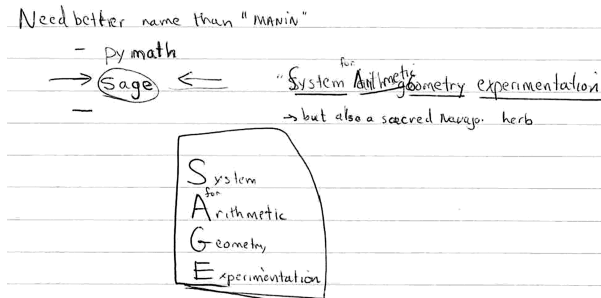 Need better name than "MANIN"
- pymath
→ sage ←
—
"System for Arithmetic geometry experimentation
→ but also a sacred Navajo herb
System
for
Arithmetic
Geometry
Experimentation